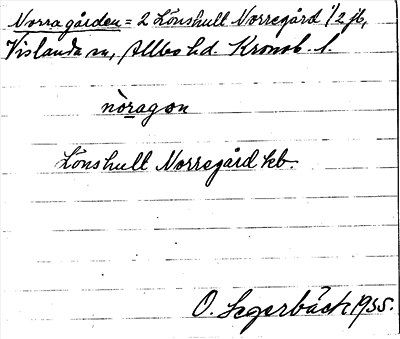 Norra gården = 2 Lönshult Norregård 1/2 jb,
Vislanda sn, Allbo hd. Kronob. l.
nòragon
Lönshult Norregård kb.
O. Segerbäck 1955.